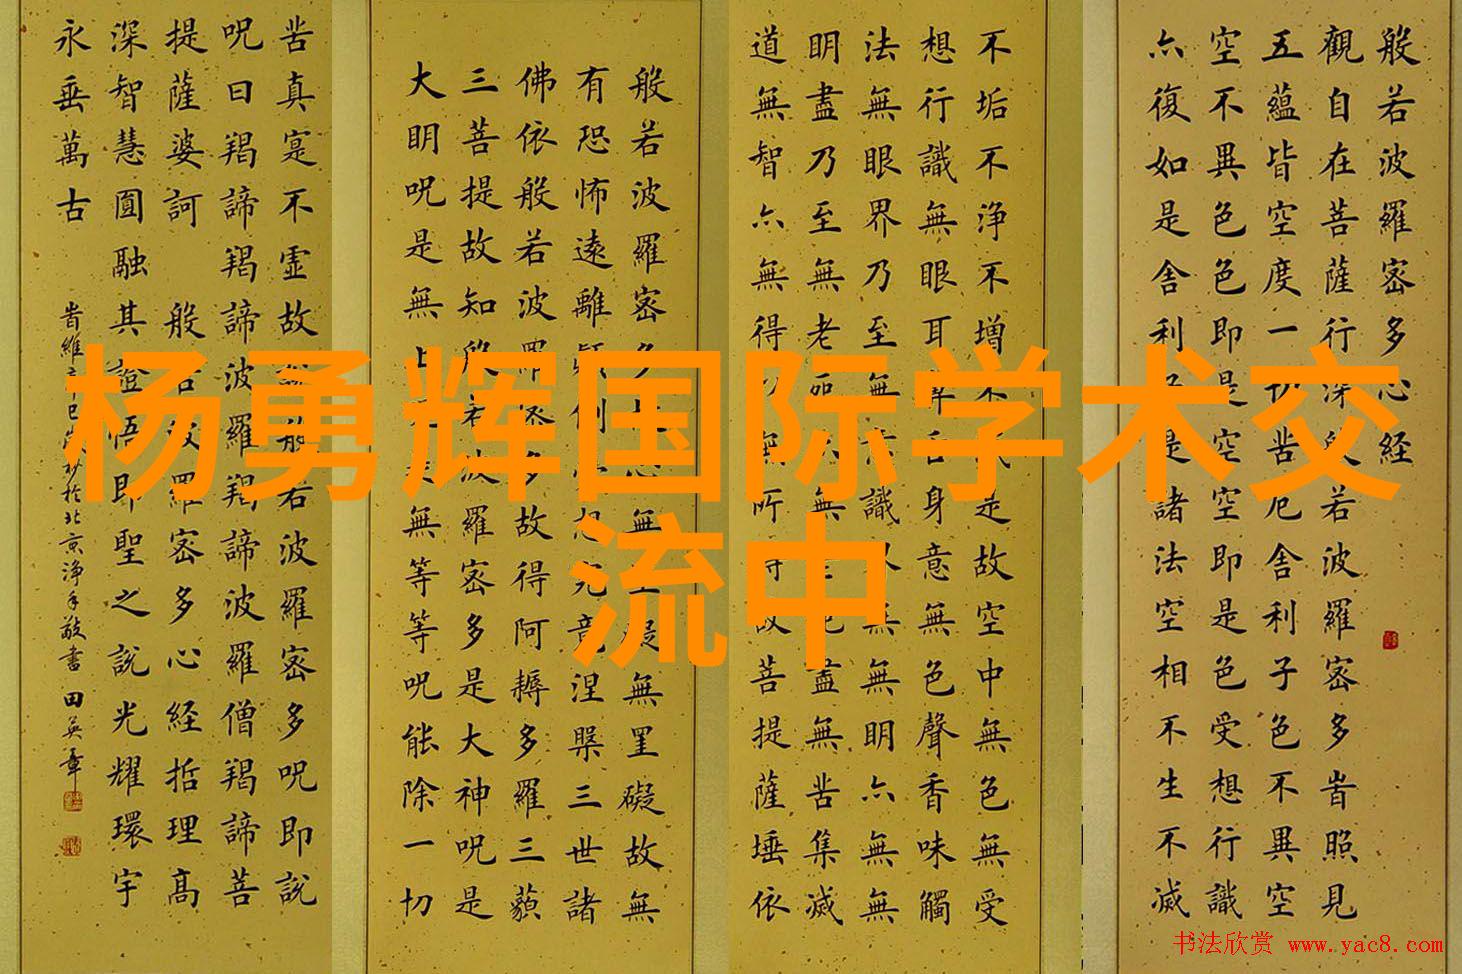 杨勇辉国际学术交
流中
般若波羅密多心経
觀自在菩薩行深般若波羅密多峕照見
五蘊皆空度一切苦厄舍利子色不異空
空不異色色即是空空即是色受想行識
亦復如是舍利子是諸法空相不生不滅
不垢不淨不增不減是故空中無色無受
想行識無眼耳鼻舌身意無色聲香味觸
法無眼界乃至無意識界無無明亦無無
明盡乃至無老死亦無老死盡無苦集滅
道無智亦無得以無所得故菩提薩埵依
般若波羅密多故心無罣礙無罣礙故無
有恐怖遠離顛倒夢想究竟涅槃三世諸
佛依般若波羅密多故得阿耨多羅三藐
三菩提故知般若波羅密多是大神呪是
大明呪是無上呪是無等等呪能除一切
苦真寔不虛故說般若波羅密多呪即說
呪曰羯諦羯諦波羅羯諦波羅僧羯諦菩
提薩婆訶 般若波羅密多心経括理高
深智慧圓融其證悟即聖之說光耀環宇
永垂萬古
峕維辛巳於北京淨手敬書 田英章
书法欣赏 www.yac8.com